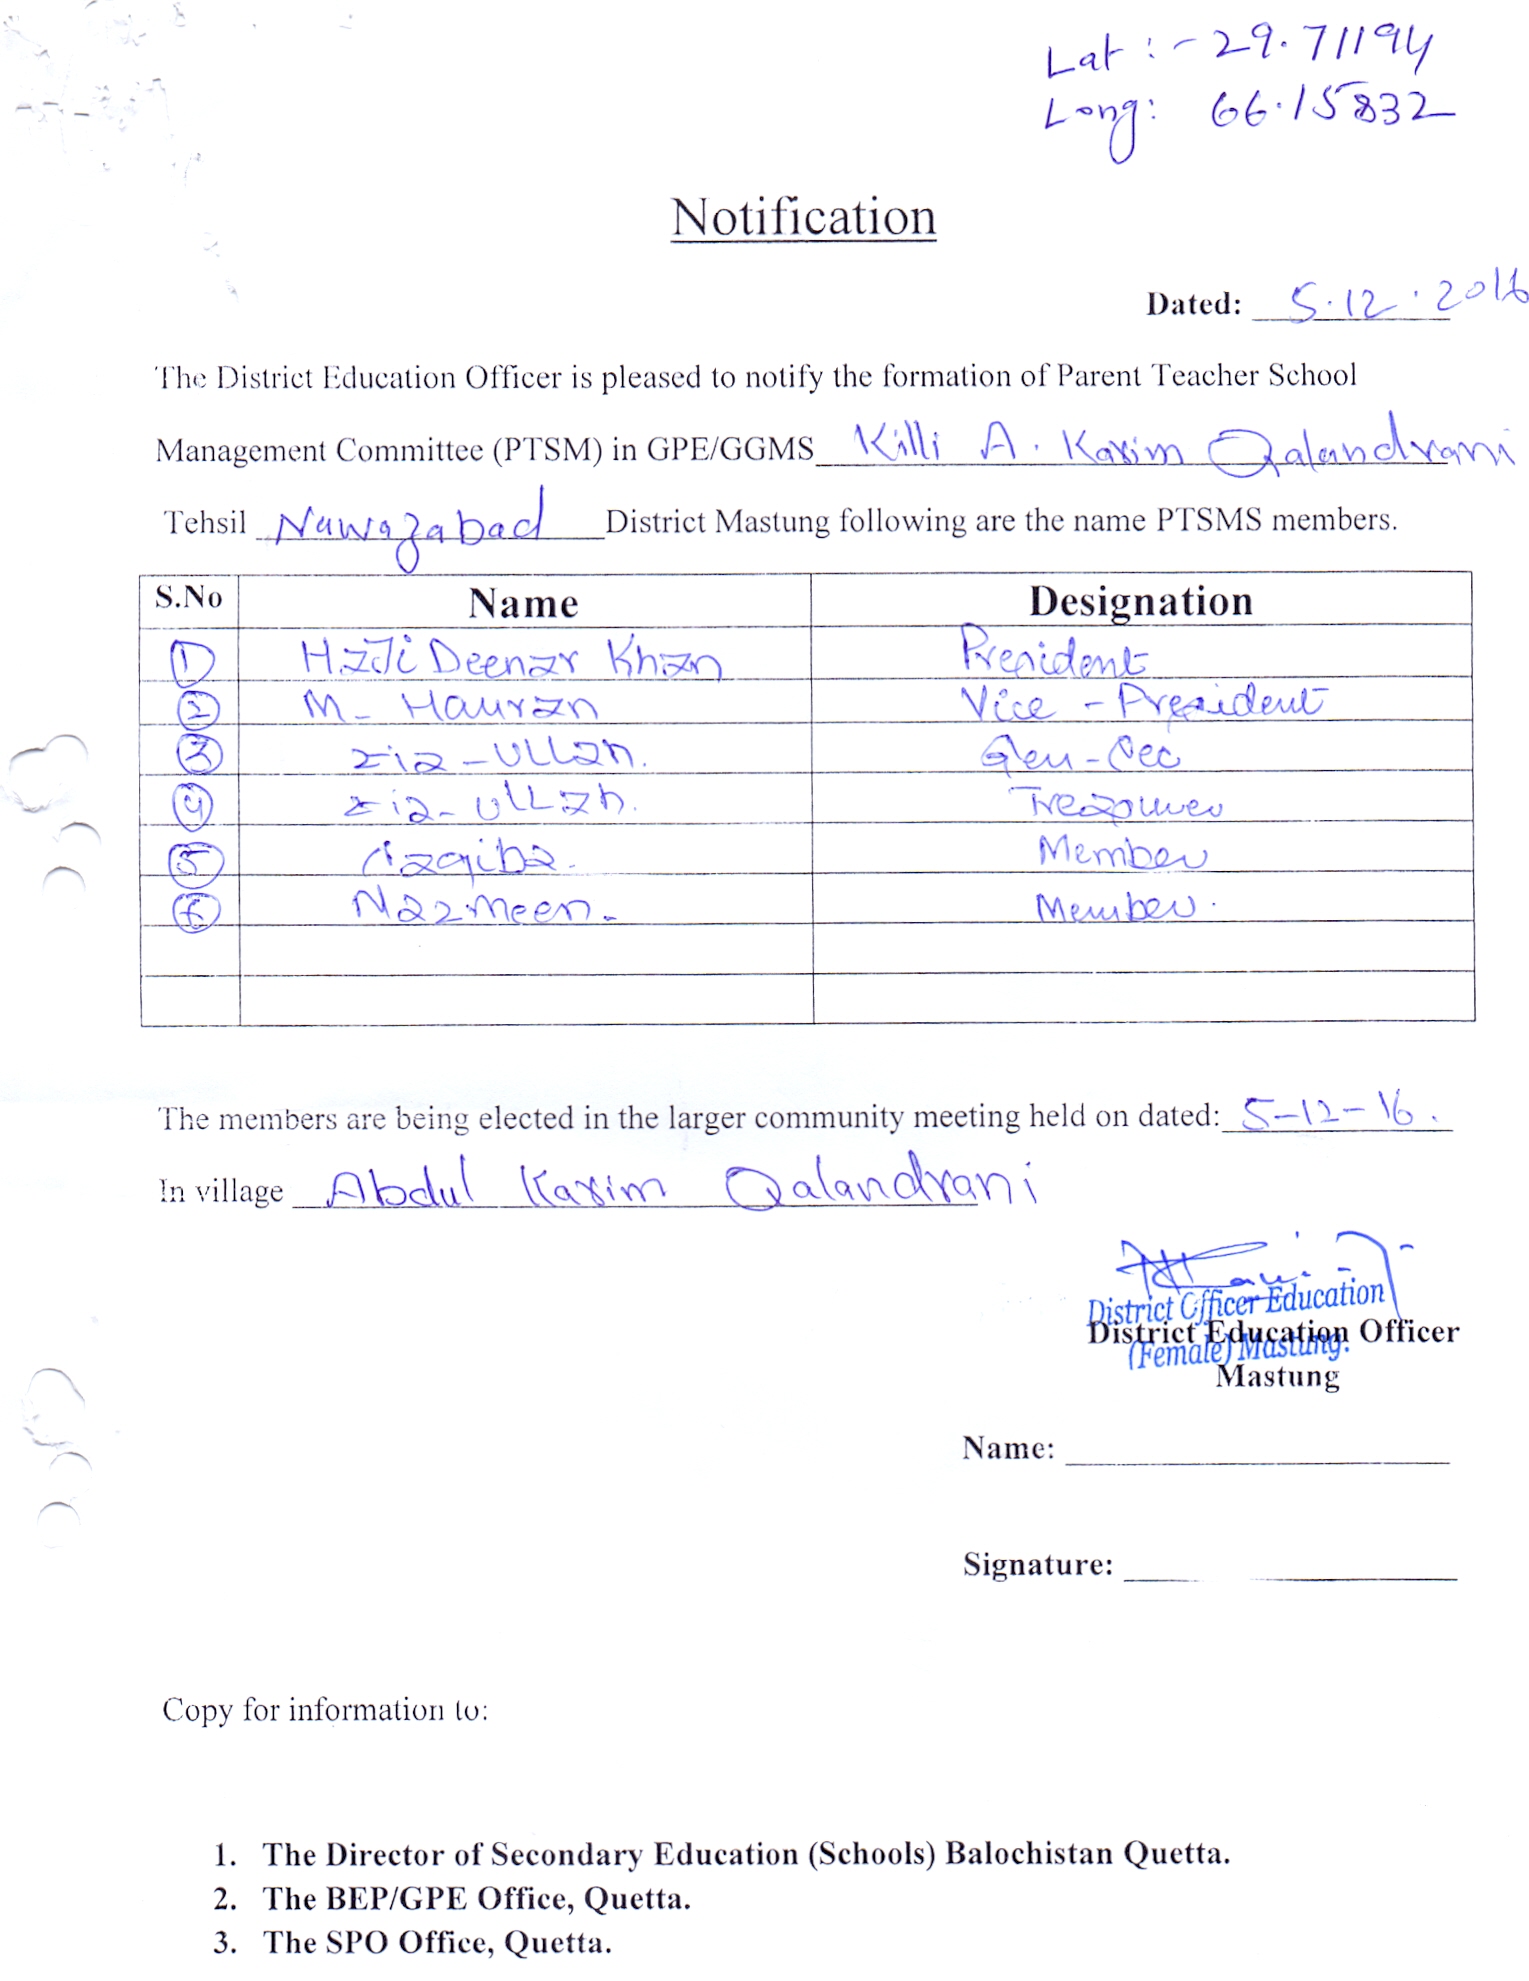 Lat :- 29.71194
Long: 66.15832
Notification
Dated: 5.12.2016
The District Education Officer is pleased to notify the formation of Parent Teacher School
Management Committee (PTSM) in GPE/GGMS Killi A. Karim Qalandrani
Tehsil Nawazabad District Mastung following are the name PTSMS members.
S.No Name Designation
1 HaJi Deenar Khan President
2 M- Hauran Vice - President
3 Zia-ULLah. Gen-Sec
4 Zia-ULLah. Treasurer
5 Member
6 Nazmeen. Member.
The members are being elected in the larger community meeting held on dated: 5-12-16.
In village Abdul Karim Qalandrani
District Officer Education
District Education Officer
(Female) Mastung.
Mastung
Name:
Signature:
Copy for information to:
1. The Director of Secondary Education (Schools) Balochistan Quetta.
2. The BEP/GPE Office, Quetta.
3. The SPO Office, Quetta.